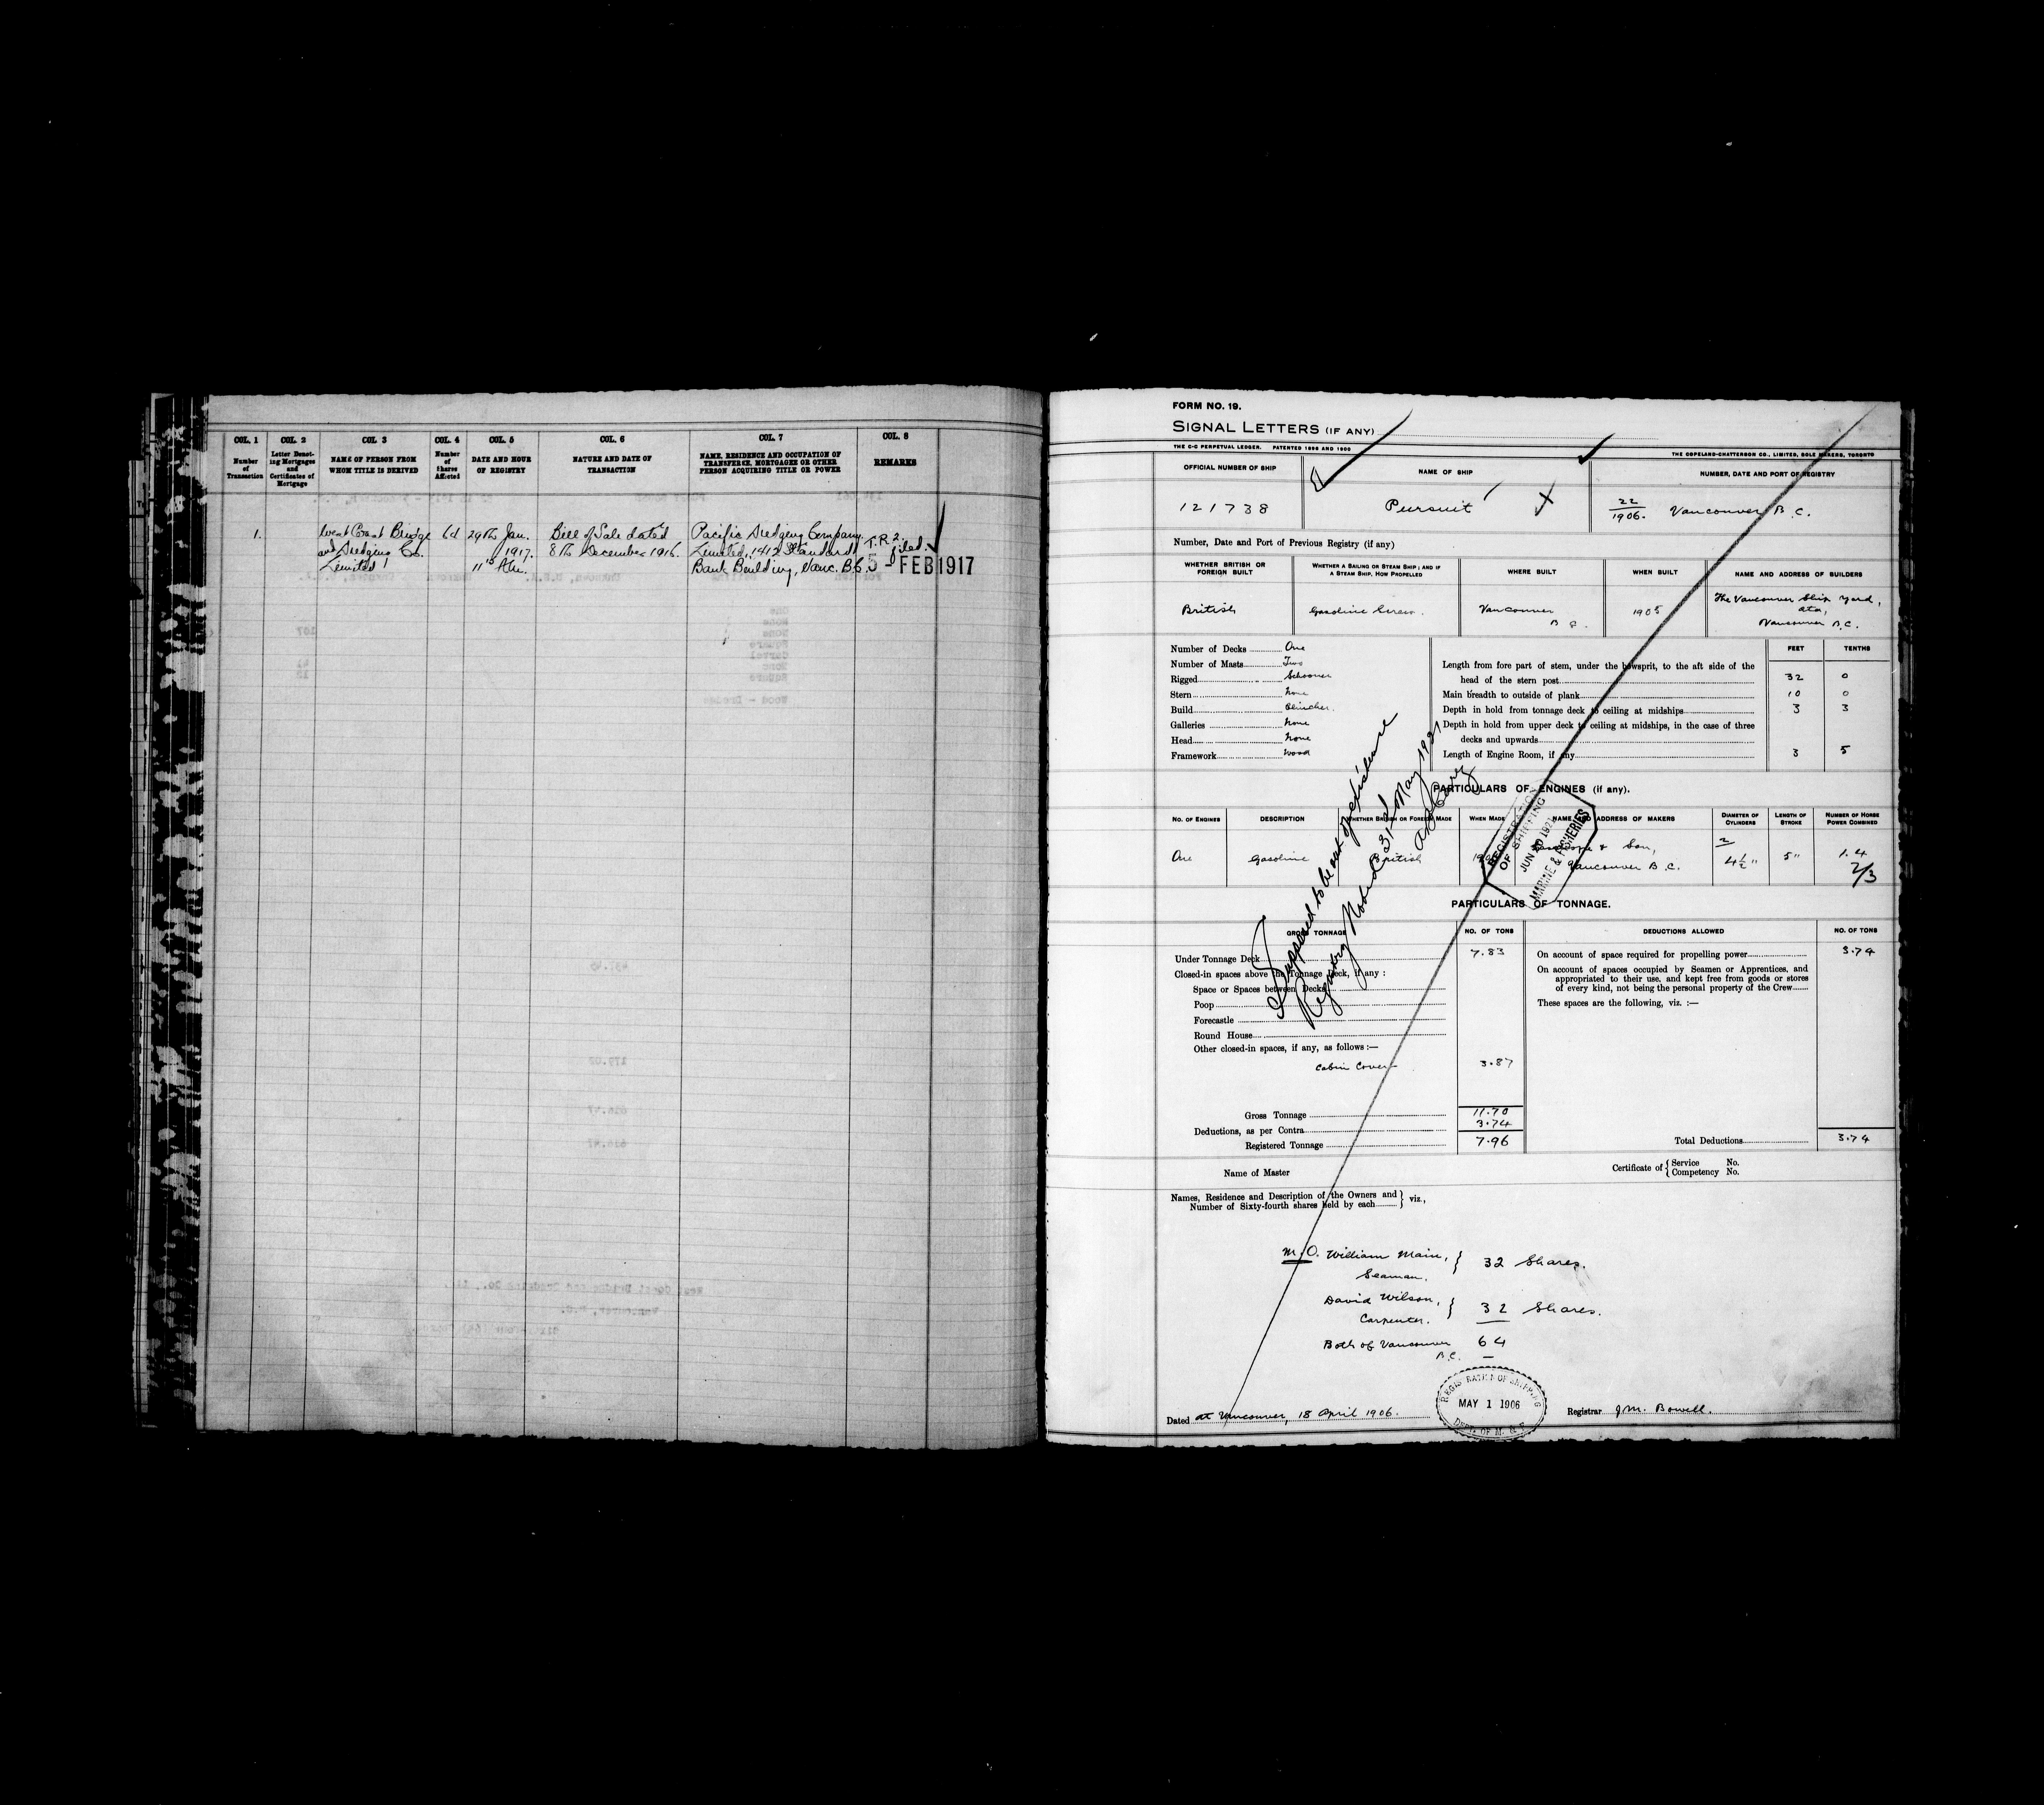 COL. 1 COL. 2 COL. 3 COL. 4 COL. 5 COL. 6 COL. 7 COL. 8
Number of Transaction
Letter Denoting Mortgages and Certificates of Mortgage
NAME OF PERSON FROM WHOM TITLE IS DERIVED
Number of Shares Affected
DATE AND HOUR OF REGISTRY
NATURE AND DATE OF TRANSACTION
NAME, RESIDENCE AND OCCUPATION OF TRANSFEREE, MORTGAGEE OR OTHER PERSON ACQUIRING TITLE OR POWER
REMARKS
1. West Coast Bridge 64 29th Jan. Bill of Sale dated Pacific Dredging Company T.R.2.
and Dredging Co. 1917. 8th December 1916. Limited, 1412 Standard filed.
Limited 11 Am. Bank Building, Vanc. B.C. 5 - FEB 1917
FORM NO. 19.
SIGNAL LETTERS (IF ANY)
THE C-C PERPETUAL LEDGER. PATENTED 1896 AND 1900 THE COPELAND-CHATTERSON CO., LIMITED, SOLE MAKERS, TORONTO
OFFICIAL NUMBER OF SHIP NAME OF SHIP NUMBER, DATE AND PORT OF REGISTRY
121738 Pursuit 22/1906. Vancouver B.C.
Number, Date and Port of Previous Registry (if any)
WHETHER BRITISH OR FOREIGN BUILT
WHETHER A SAILING OR STEAM SHIP; AND IF A STEAM SHIP, HOW PROPELLED
WHERE BUILT WHEN BUILT NAME AND ADDRESS OF BUILDERS
British Gasoline Screw. Vancouver B.C. 1905 The Vancouver Ship Yard,
Vancouver B.C.
Number of Decks One
Number of Masts Two
Rigged Schooner
Stern None
Build Clincher.
Galleries None
Head None
Framework Wood
FEET TENTHS
Length from fore part of stem, under the bowsprit, to the aft side of the
head of the stern post 32 0
Main breadth to outside of plank 10 0
Depth in hold from tonnage deck to ceiling at midships 3 3
Depth in hold from upper deck to ceiling at midships, in the case of three
decks and upwards
Length of Engine Room, if any 3 5
PARTICULARS OF ENGINES (if any).
No. of Engines DESCRIPTION Whether British or Foreign Made When Made NAME AND ADDRESS OF MAKERS Diameter of Cylinders Length of Stroke Number of Horse Power Combined
One Gasoline British & Son, 2 1.4
Vancouver B.C. 4½" 5" 2/3
REGISTRATION OF SHIPPING
JUN 20 192
MARINE & FISHERIES
Supposed to be out of existence
Registry closed 31st May 192
PARTICULARS OF TONNAGE.
GROSS TONNAGE NO. OF TONS DEDUCTIONS ALLOWED NO. OF TONS
Under Tonnage Deck 7.83
Closed-in spaces above the Tonnage Deck, if any :
Space or Spaces between Decks
Poop
Forecastle
Round House
Other closed-in spaces, if any, as follows :—
Cabin Cover 3.87
Gross Tonnage 11.70
Deductions, as per Contra 3.74
Registered Tonnage 7.96
On account of space required for propelling power 3.74
On account of spaces occupied by Seamen or Apprentices, and
appropriated to their use, and kept free from goods or stores
of every kind, not being the personal property of the Crew
These spaces are the following, viz. :—
Total Deductions 3.74
Name of Master Certificate of { Service No.
Competency No.
Names, Residence and Description of the Owners and
Number of Sixty-fourth shares held by each } viz.,
M.O. William Main, } 32 Shares.
Seaman.
David Wilson, } 32 Shares.
Carpenter.
Both of Vancouver 64
B.C.
REGISTRATION OF SHIPPING
MAY 1 1906
DEPT. OF M. & F.
Dated at Vancouver, 18 April 1906. Registrar J.M. Bowell.